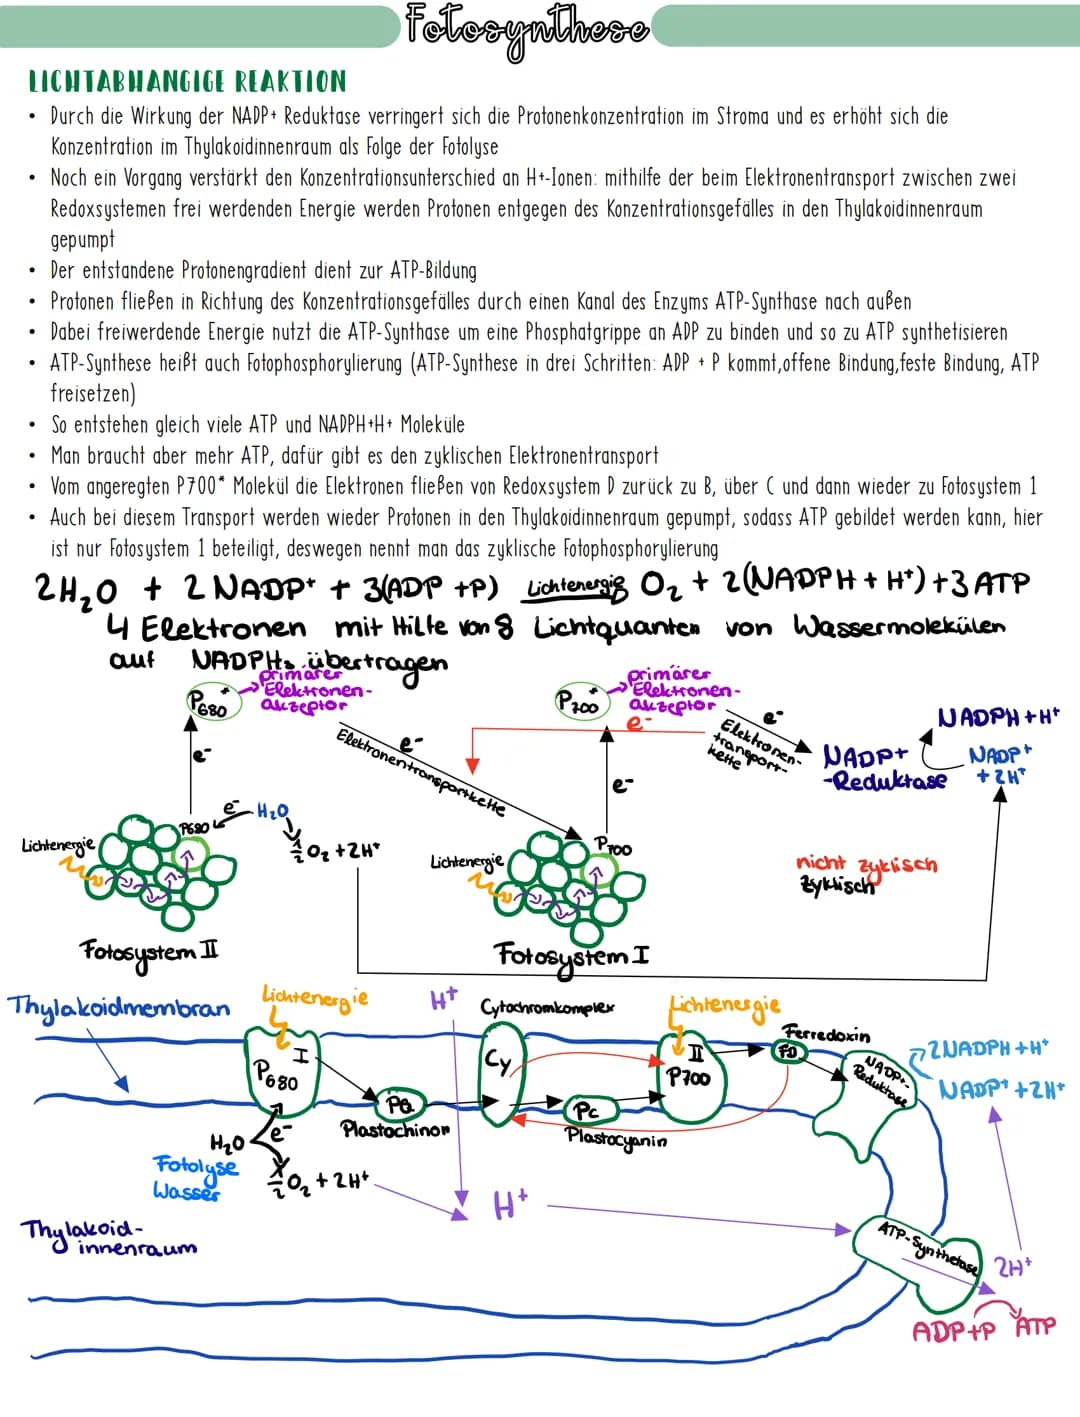 Fotosynthese
LICHTABHANGIGE REAKTION
• Durch die Wirkung der NADP+ Reduktase verringert sich die Protonenkonzentration im Stroma und es erhöht sich die
Konzentration im Thylakoidinnenraum als Folge der Fotolyse
• Noch ein Vorgang verstärkt den Konzentrationsunterschied an H+-Ionen: mithilfe der beim Elektronentransport zwischen zwei
Redoxsystemen frei werdenden Energie werden Protonen entgegen des Konzentrationsgefälles in den Thylakoidinnenraum
gepumpt
• Der entstandene Protonengradient dient zur ATP-Bildung
• Protonen fließen in Richtung des Konzentrationsgefälles durch einen Kanal des Enzyms ATP-Synthase nach außen
• Dabei freiwerdende Energie nutzt die ATP-Synthase um eine Phosphatgrippe an ADP zu binden und so zu ATP synthetisieren
• ATP-Synthese heißt auch Fotophosphorylierung (ATP-Synthese in drei Schritten: ADP + P kommt,offene Bindung,feste Bindung, ATP
freisetzen)
• So entstehen gleich viele ATP und NADPH+H+ Moleküle
• Man braucht aber mehr ATP, dafür gibt es den zyklischen Elektronentransport
• Vom angeregten P700* Molekül die Elektronen fließen von Redoxsystem D zurück zu B, über C und dann wieder zu Fotosystem 1
• Auch bei diesem Transport werden wieder Protonen in den Thylakoidinnenraum gepumpt, sodass ATP gebildet werden kann, hier
ist nur Fotosystem 1 beteiligt, deswegen nennt man das zyklische Fotophosphorylierung
2H₂O + 2 NADP⁺ + 3(ADP +P) Lichtenergie O₂ + 2(NADPH + H⁺) +3 ATP
4 Elektronen mit Hilfe von 8 Lichtquanten von Wassermolekülen
auf NADPH₂ übertragen
P680⁺
primärer
Elektronen-
akzeptor
P700⁺
primärer
Elektronen-
akzeptor
e⁻
e⁻
Elektronentransportkette
e⁻
e⁻
Elektronen-
transport-
kette
NADP+
-Reduktase
NADPH+H⁺
NADP⁺
+2H⁺
e⁻
e⁻
P680
e⁻
H₂O
½ O₂ +2H⁺
Lichtenergie
Lichtenergie
P700
nicht zyklisch
zyklisch
Fotosystem II
Fotosystem I
Thylakoidmembran
Lichtenergie
H⁺
Cytochromkomplex
Lichtenergie
Ferredoxin
I
P680
Cy
II
P700
FD
NADP+-
Reduktase
2NADPH+H⁺
NADP⁺+2H⁺
PQ
Plastochinon
Pc
Plastocyanin
H₂O
e⁻
Fotolyse
Wasser
½ O₂ + 2H⁺
H⁺
Thylakoid-
innenraum
ATP-Synthetase
2H⁺
ADP+P ATP